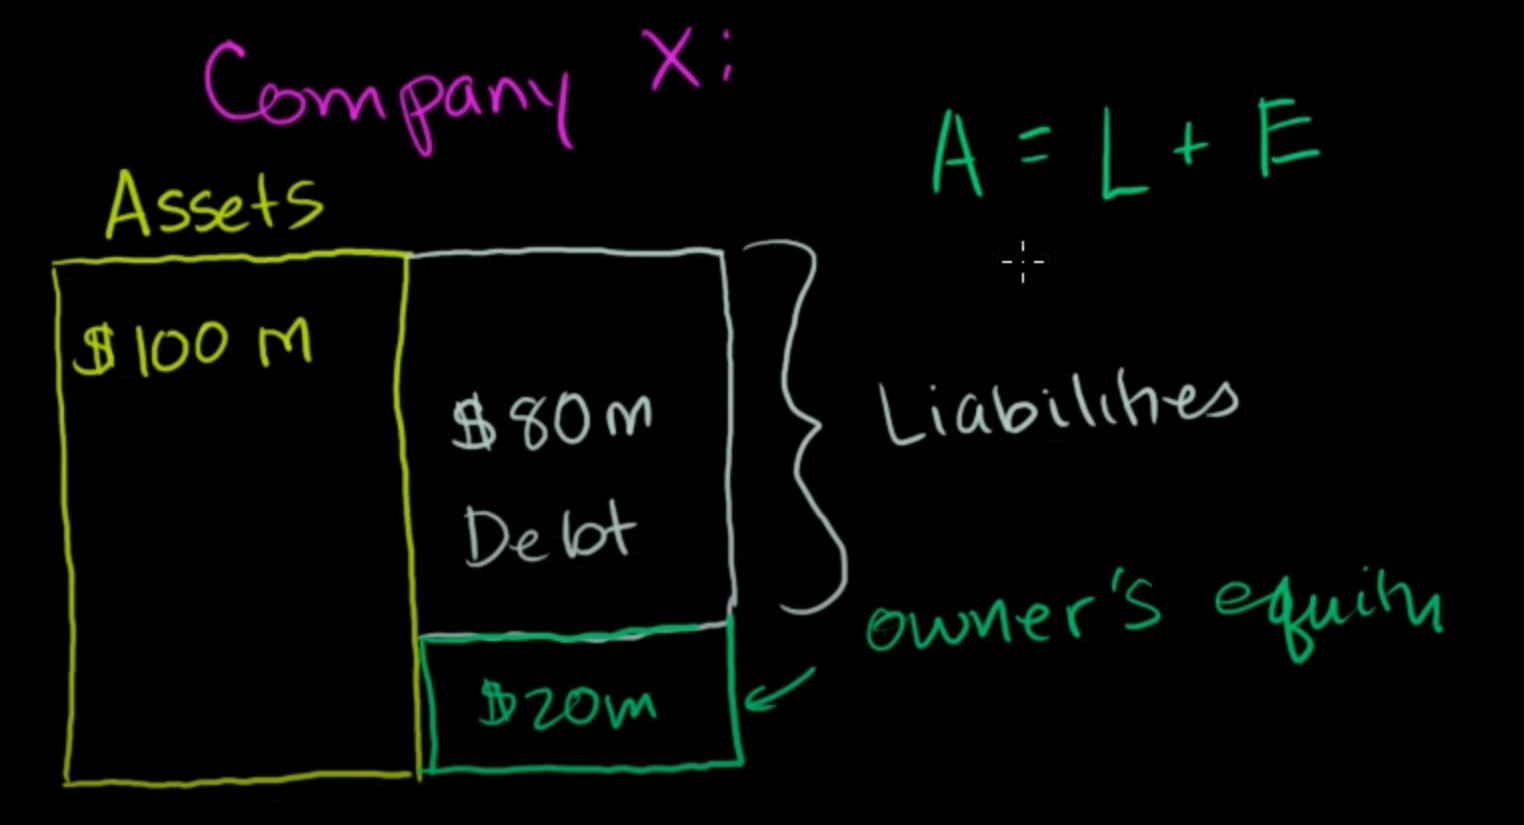 Company X:
A = L + E
Assets
$100 M
$80m
Debt
Liabilities
owner's equity
$20m